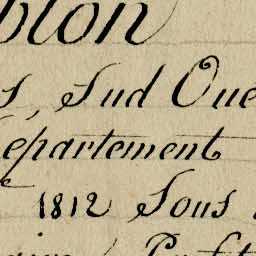 blon
s, Sud Oue
épartement
1812 Sous